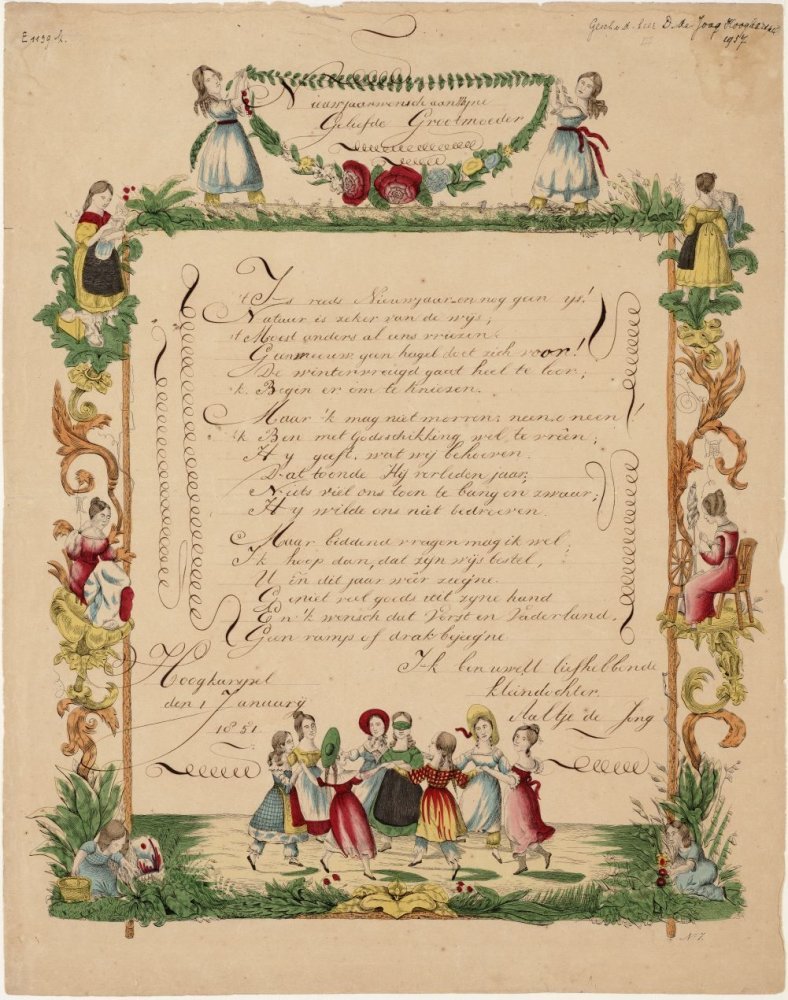 E 1139 k.
Gesch. v. d. heer D. de Jong Hoogkarspel
1957
Nieuwjaarwensch aan Mijne
Geliefde Grootmoeder
't Is reeds Nieuwjaar en nog geen ys!
Natuur is zeker van de wijs;
't Moest anders al eens vriezen.
Geen sneeuw, geen hagel doet zich voor!
De wintervreugd gaat heel te loor;
'k Begin er om te kniezen.
Maar 'k mag niet morren; neen, o neen!
'k Ben met Godsschikking wel te vreên;
Hy geeft, wat wij behoeven.
Dat toonde Hij verleden jaar;
Niets viel ons toen te bang en zwaar;
Hy wilde ons niet bedroeven.
Maar biddend vragen mag ik wel;
Ik hoop dan, dat zyn wijs bestel,
U in dit jaar wêer zegene.
Geniet veel goeds uit zyne hand
En 'k wensch dat Vorst en Vaderland,
Geen ramp of druk bejeegne
Hoogkarspel
den 1 January
1851.
Ik ben uw liefhebbende
kleindochter
Aaltje de Jong
N. 7.